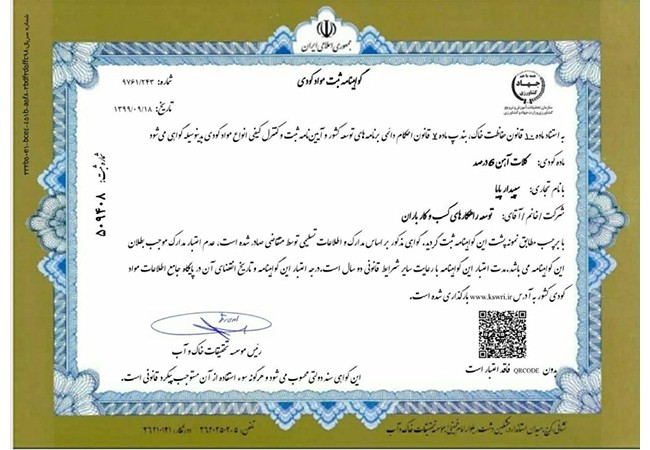 جمهوری اسلامی ایران
گواهینامه ثبت مواد کودی
شماره: ۹۷۶۱/۲۴۳
تاریخ: ۱۳۹۹/۰۹/۱۸
جهاد
کشاورزی
به استناد ماده ۱۰ قانون حفاظت خاک، بند پ ماده ۷ قانون احکام دائمی برنامه های توسعه کشور و آیین نامه ثبت و کنترل کیفی انواع مواد کودی بدینوسیله گواهی می شود
ماده کودی: کلات آهن 6 درصد
با نام تجاری: سپیدار پایا
شرکت / خانم / آقای: توسعه راهکارهای کسب و کار باران
با برچسب مطابق نمونه پشت این گواهینامه ثبت گردید. گواهی مذکور بر اساس مدارک و اطلاعات تسلیمی توسط متقاضی صادر شده است، عدم اعتبار مدارک موجب بطلان
این گواهینامه می باشد. مدت اعتبار این گواهینامه با رعایت سایر شرایط قانونی دو سال است. درجه اعتبار این گواهینامه و تاریخ انقضای آن در پایگاه جامع اطلاعات مواد
کودی کشور به آدرس www.kswri.ir بارگذاری شده است.
رئیس موسسه تحقیقات خاک و آب
بدون QRCODE فاقد اعتبار است
این گواهی سند دولتی محسوب می شود و هرگونه سوء استفاده از آن مستوجب پیگرد قانونی است.
شماره ثبت: ۵۰۹۴۰۸
نشانی: کرج، میدان استاندارد، مشکین دشت، بلوار امام خمینی، موسسه تحقیقات خاک و آب
تلفن: ۵-۳۶۲۰۲۵۰۲
دورنگار: ۳۶۲۱۰۱۲۱